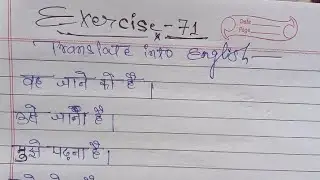 Exercise-71
Date
Page
Translate into English—
वह जाने को है।
उसे जाना है।
मुझे पढ़ना है।